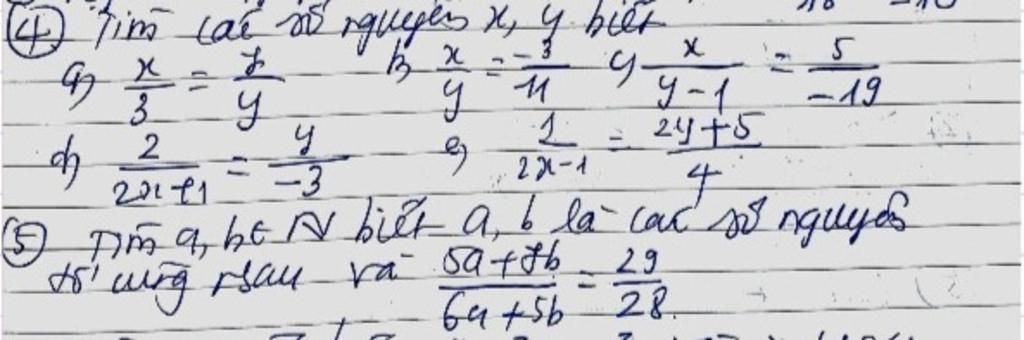 ④ Tìm các số nguyên x, y biết
a) x/3 = 7/y b) x/y = -3/11 c) x/(y-1) = 5/-19
d) 2/(2x+1) = y/-3 e) 1/(2x-1) = (2y+5)/4
⑤ Tìm a, b ∈ N biết a, b là các số nguyên
tố cùng nhau và (5a+7b)/(6a+5b) = 29/28.